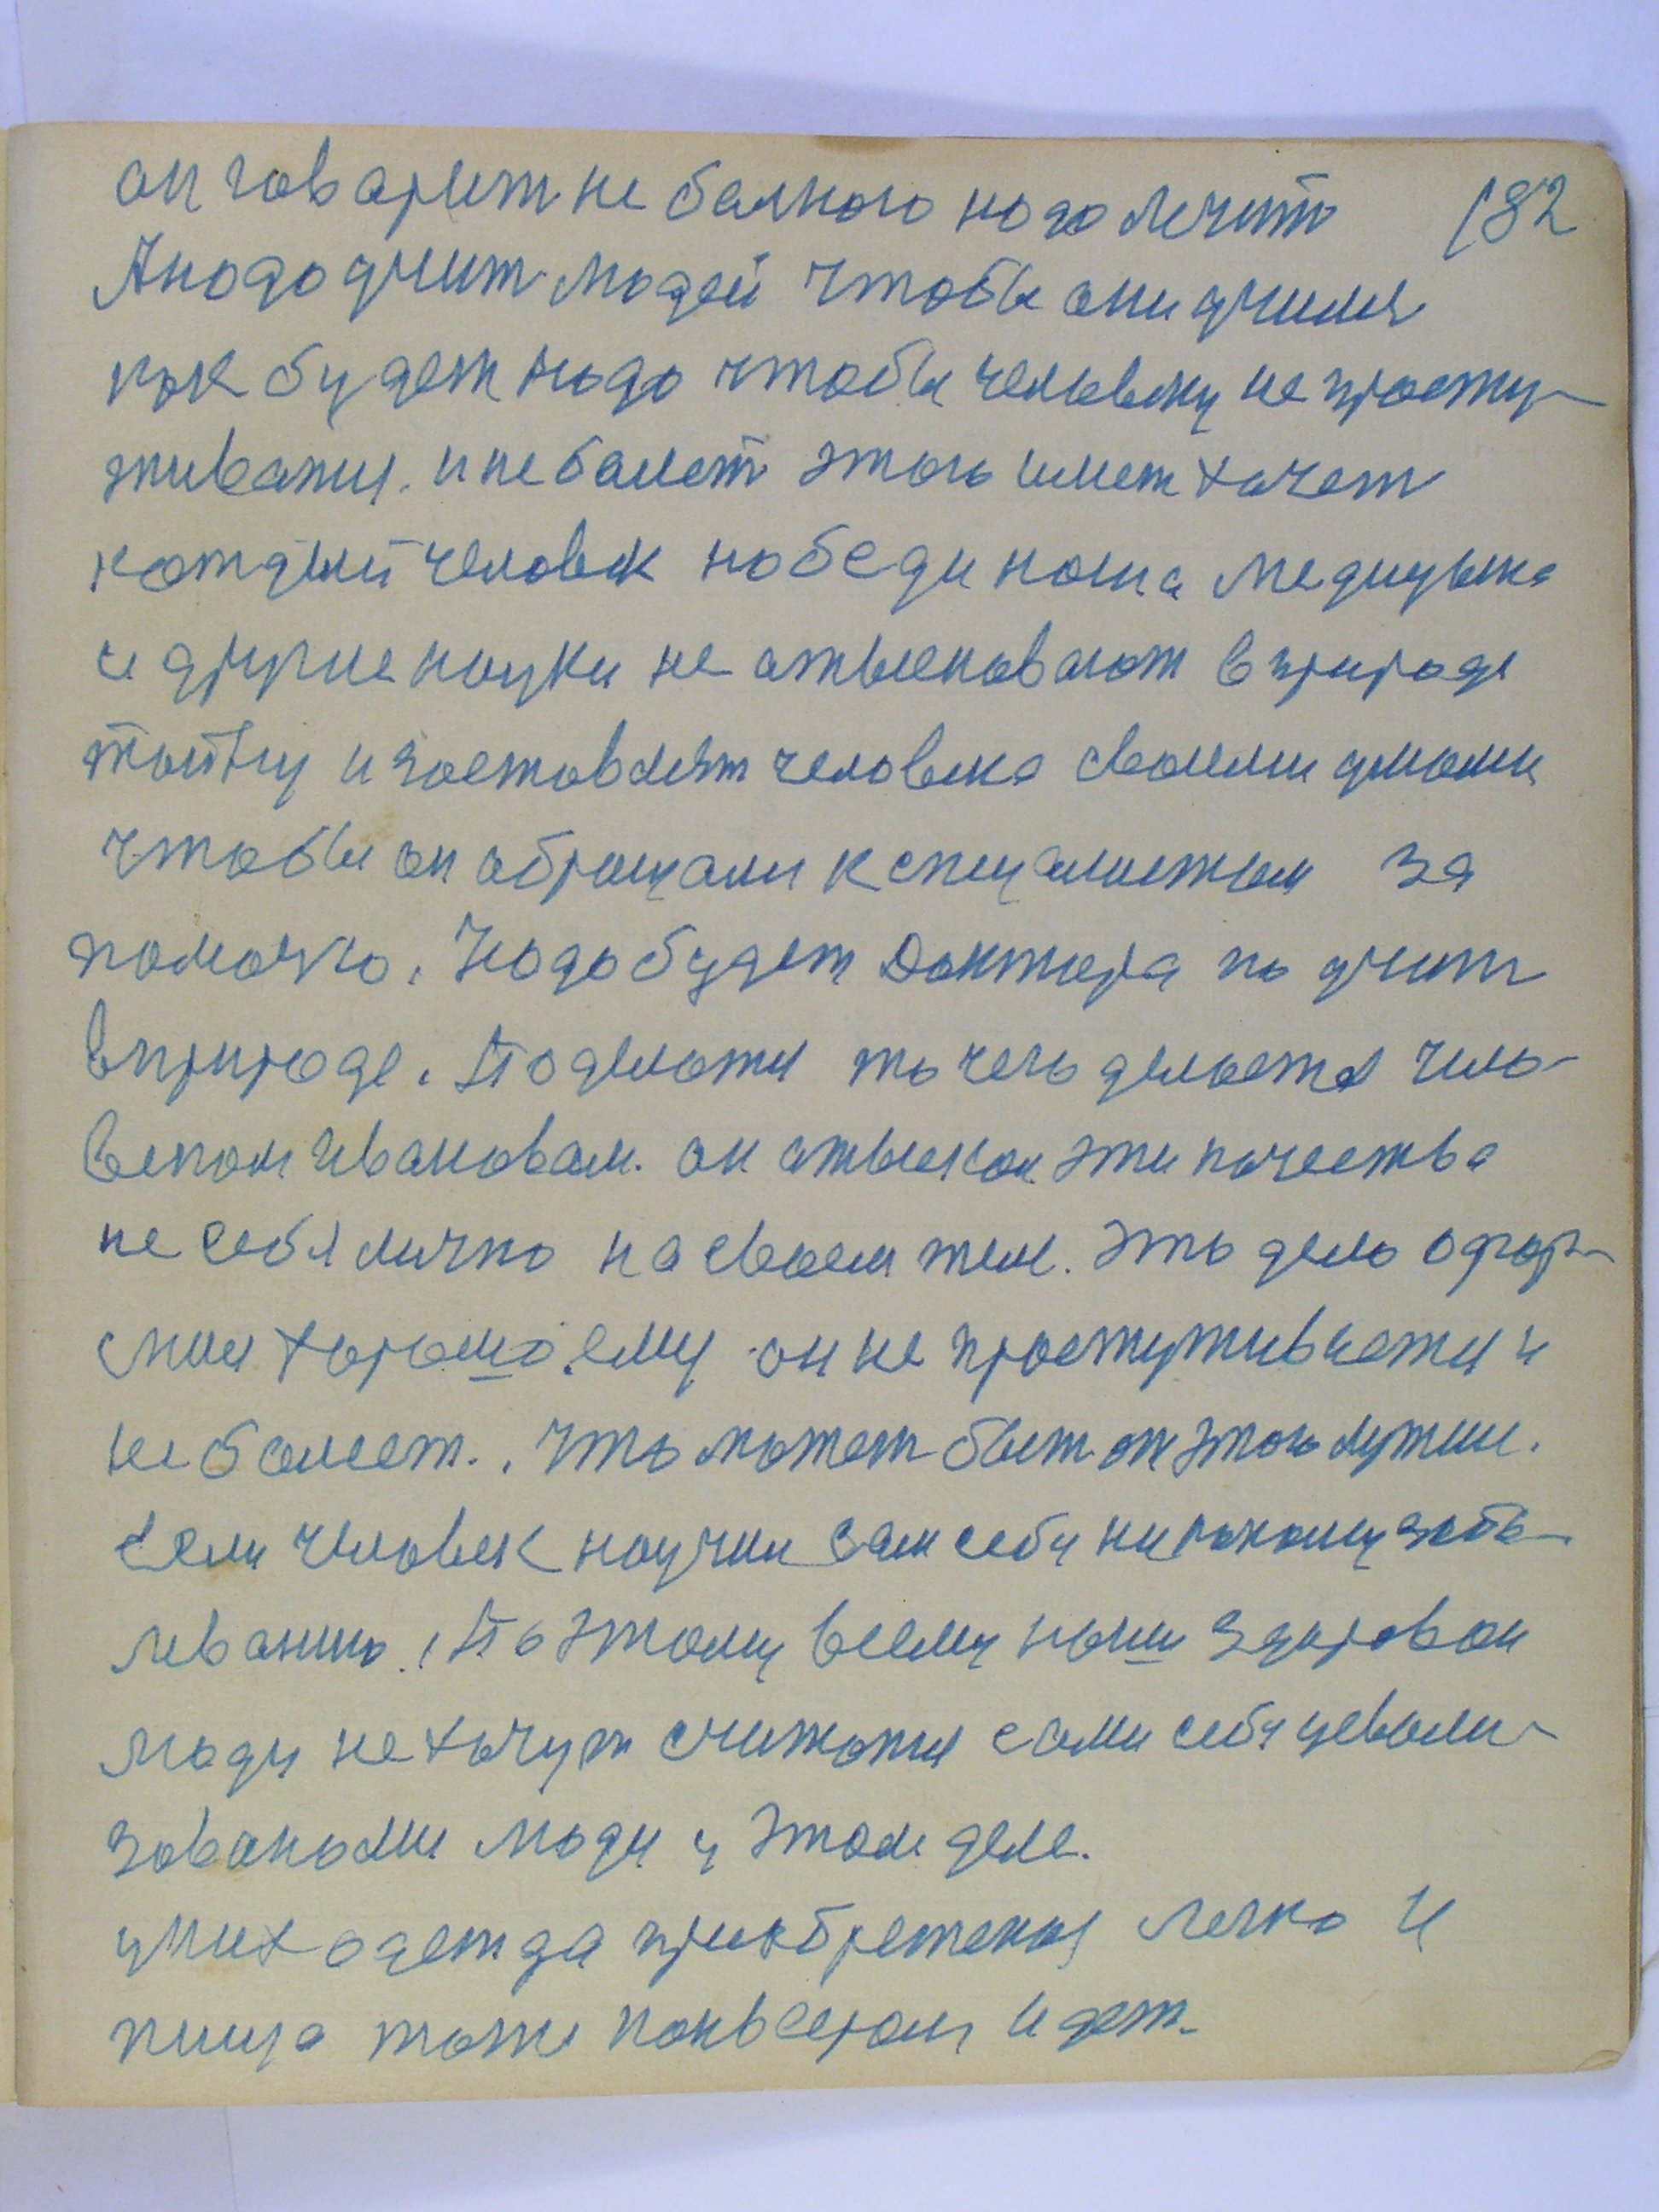 он говарит не балного надо лечить 182
А надо учит людей чтобы они училися
как будет надо чтобы человеку не просту-
живатися. и не балеть этого имет хочет
каждый человек но беди наша медицына
и другие науки не атыскавают в природе
тайну и заставляят человека своими умами
чтобы он абращался к спецалистам за
помочю. Надо будет Доктора по учит
в природе. По делатися то чего делается чело-
веком ивановам. он атыскал эти качества
не себя лично на своем теле. это дело офор-
мил хорошо ему он не простуживается и
не балеет. Что может быт от этого лутши.
Если человек научил сам себя никакому забо-
леванию. По этому всему наши здоровои
люди не хочут считатися сами себя цевали-
зоваными люди у этом деле.
у них одежда приобретеная легко и
пища тоже конвеером идет.